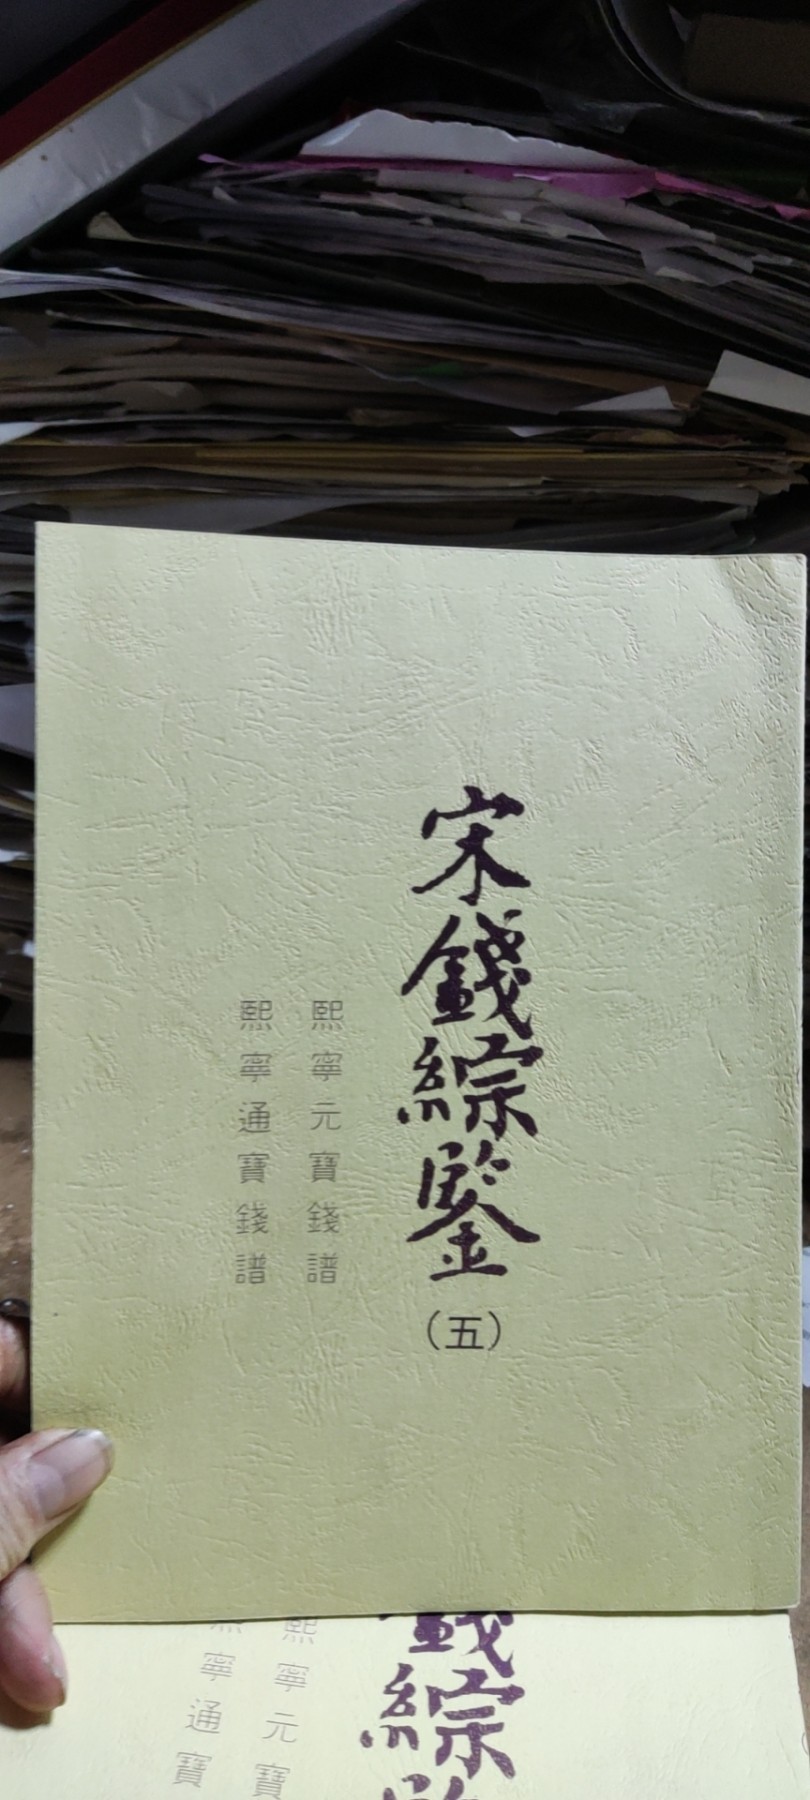 宋錢綜鑒
（五）
熙寧元寶錢譜
熙寧通寶錢譜
錢綜
熙寧元寶
熙寧通寶